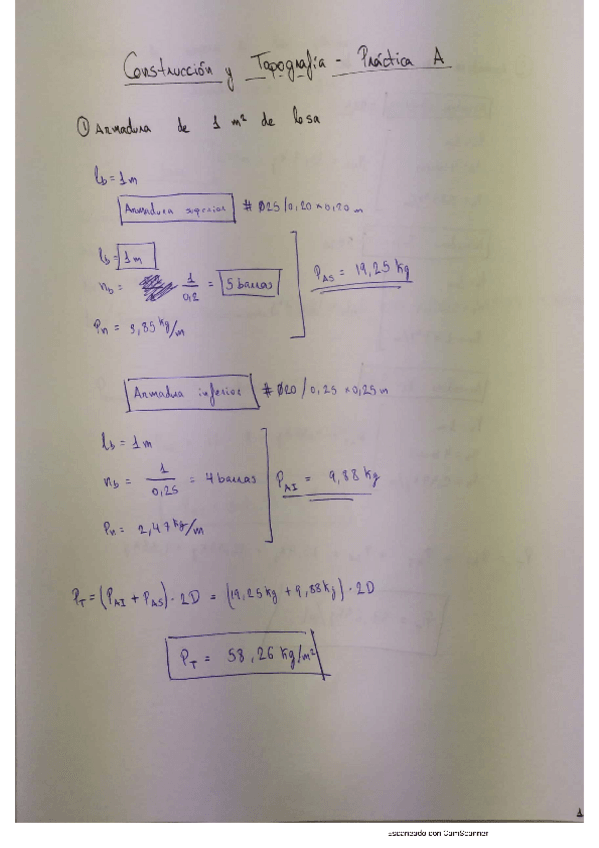 Construcción y Topografía - Práctica A
① Armadura de 1 m² de losa
lb = 1m
Armadura superior # Ø25/0,20 x 0,20 m
lb = 1m
nb = 1/0,2 = 5 barras
PAS = 19,25 kg
Pn = 3,85 kg/m
Armadura inferior # Ø20/0,25 x 0,25 m
lb = 1m
nb = 1/0,25 = 4 barras
PAI = 9,88 kg
Pn = 2,47 kg/m
PT = (PAI + PAS) · 2D = (19,25 kg + 9,88 kg) · 2D
PT = 58,26 kg/m²
1
Escaneado con CamScanner